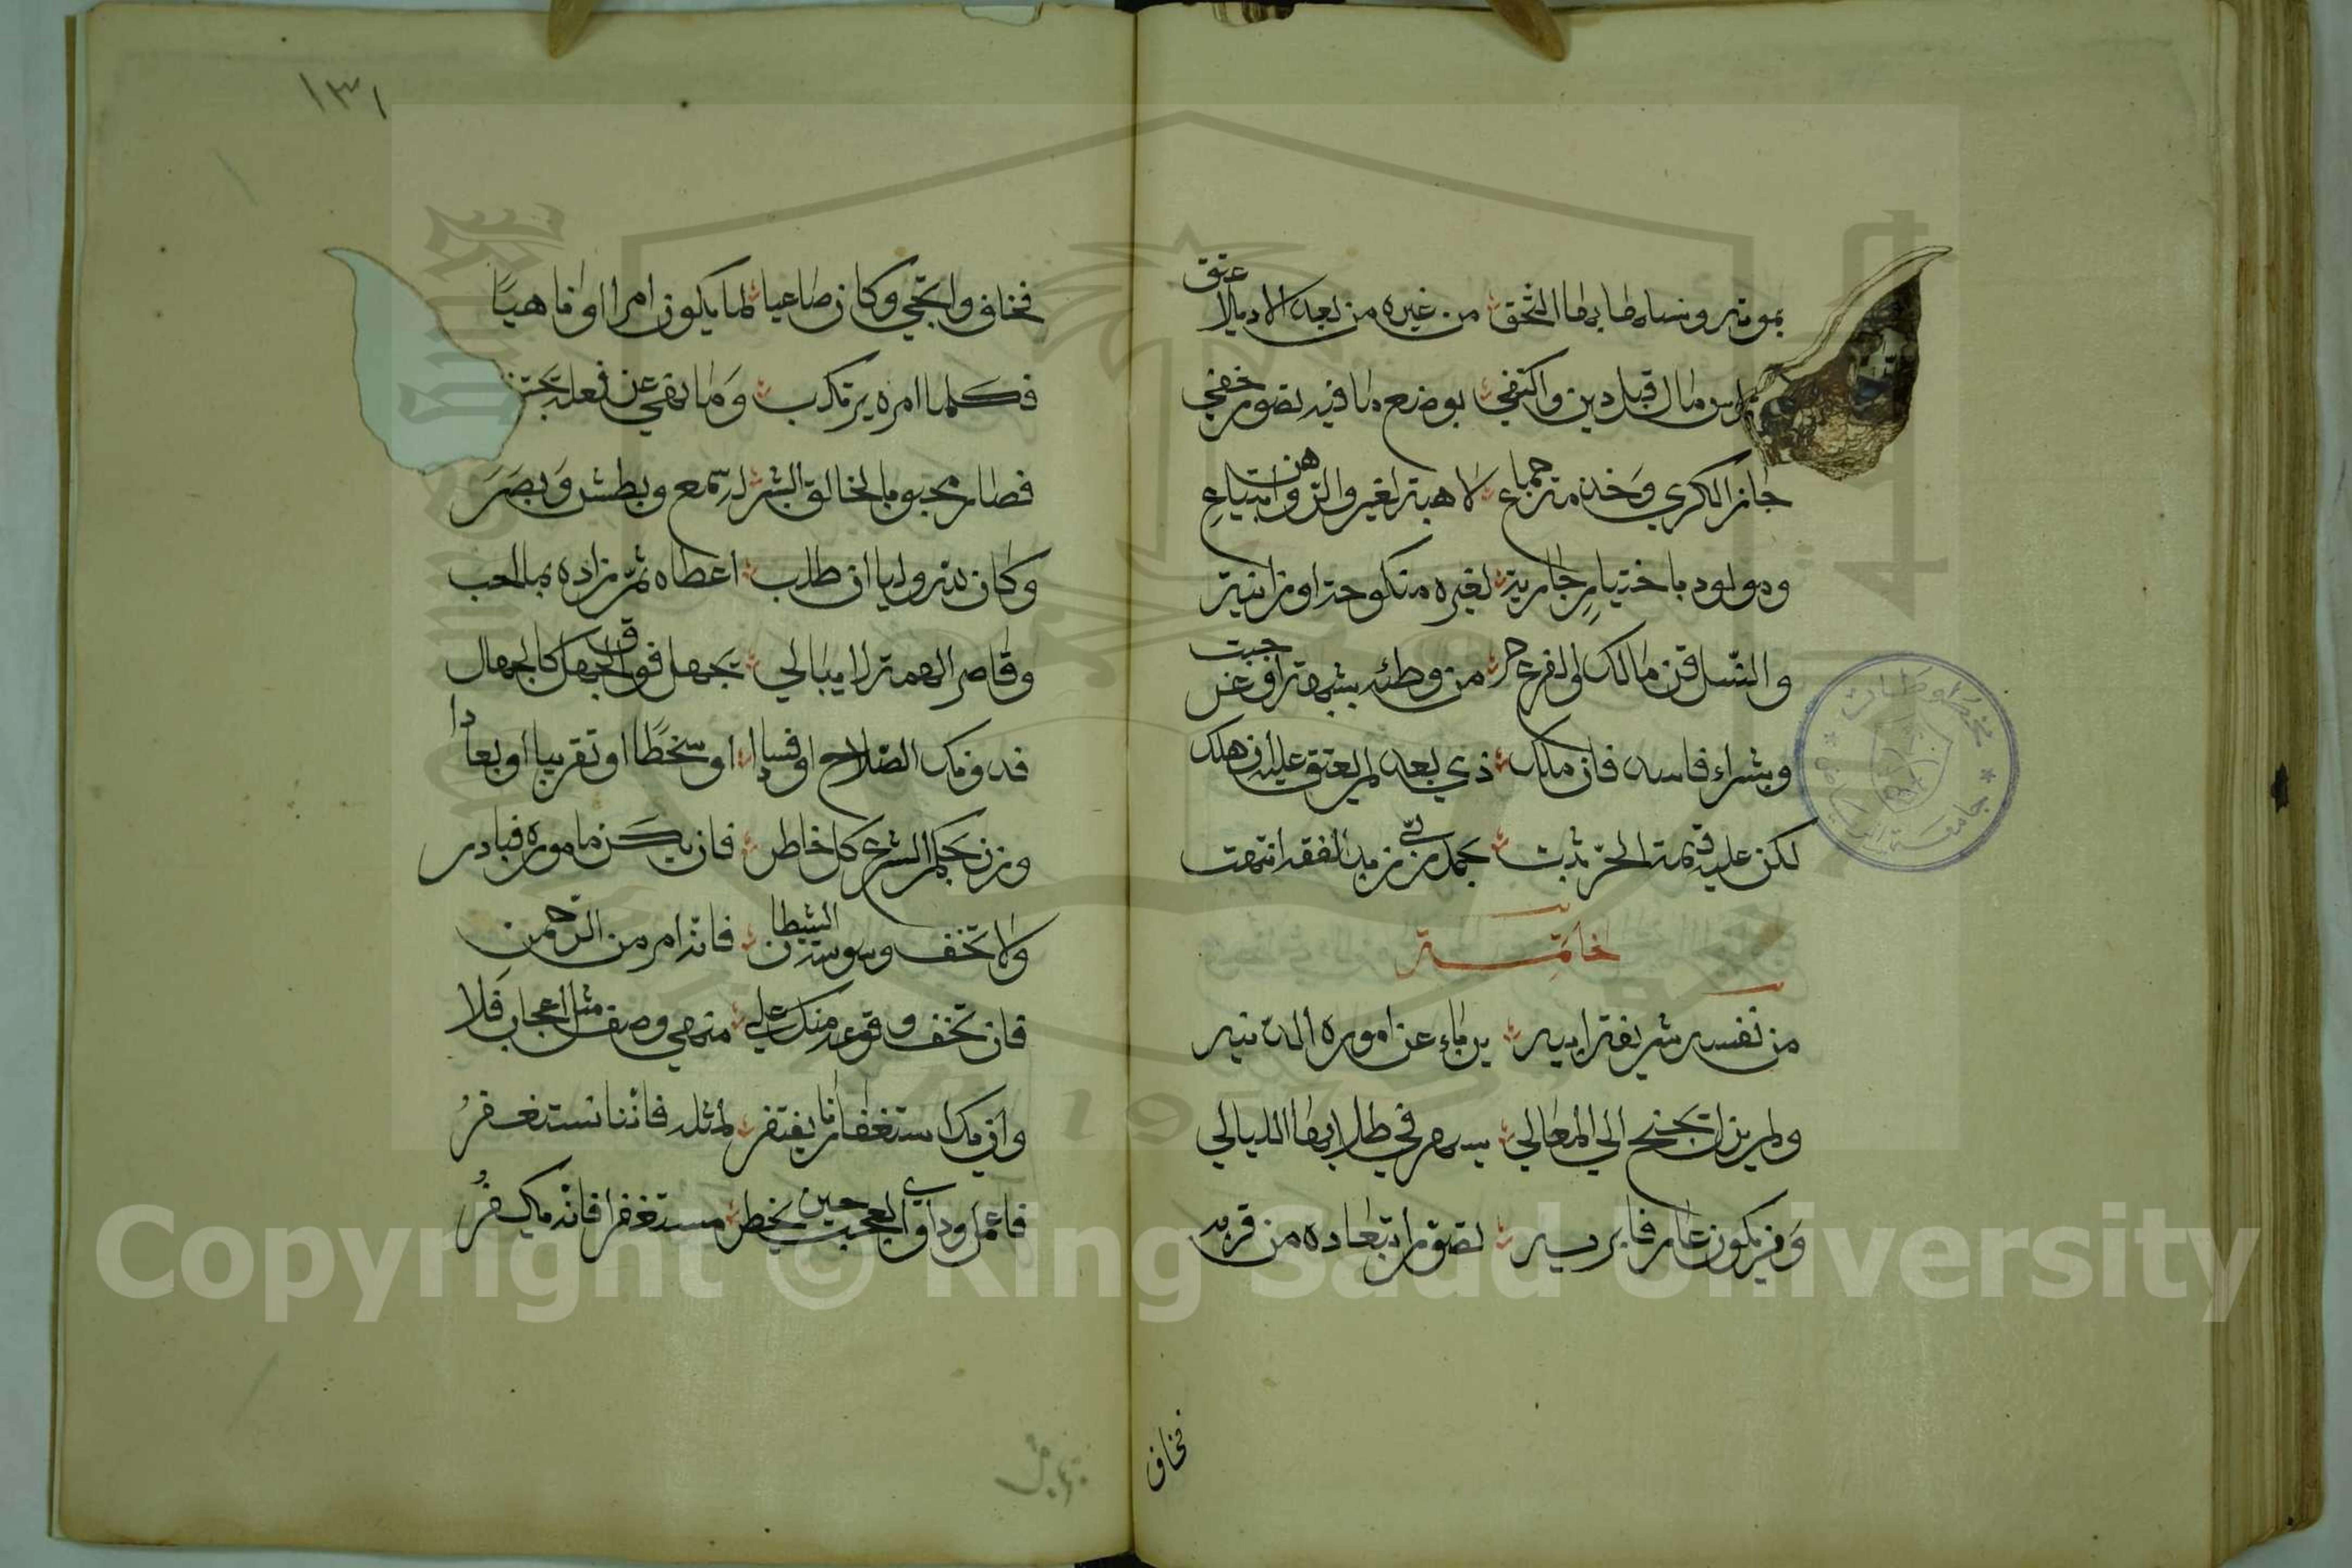 بموته ونسلها بها التحق من غيره من بعد الايلاد عتق
من راس مال قبل دين واكتفي بوضع ما فيه تصور خفي
جاز الكري وخدمة جماع لا هبة لغير والرهن وابتياع
ومولود باختيار جارية لغيره منكوحة او زانية
والنسل قن مالك والفرع حر من وطئه بشبهة او غر حيث
وبشراء فاسد فان ملك ذي بعد لم يعتق عليه ان هلك
لكن عليه قيمة الحر ثبت بحمد ربي زبد الفقه انتهت
خاتمة
من نفسه شريفة ابيه يربا عن اموره الدنيه
ولم يزل يجنح الي المعالي يسهر في طلابها الليالي
ومن يكون عارفا بربه تصور ابتعاده من قربه
فخاف
١٣١
فخاف وارتجي وكان صاغيا لما يكون امرا او ناهيا
فكلما امره يرتكب وما نهي عن فعله يجتنب
فصار محبوبا لخالق البشر له سمع وبطش وبصر
وكان لله وليا ان طلب اعطاه ثم زاده مما احب
وقاصر الهمة لا يبالي يجهل فوق الجهل كالجهال
فدونك الصلاح او فسادا او سخطا او تقريبا او بعادا
وزن بحكم الشرع كل خاطر فان يكن ماموره فبادر
ولا تخف وسوسة الشيطان فانه امر من الرحمن
فان تخف وقوعه منك علي منهي وصف مثل اعجاب فلا
وان يك استغفارنا يفتقر لمثله فاننا نستغفر
فاعمل وداوي العجب حين يخطر مستغفرا فانه يكفر
Copyright © King Saud University
1957